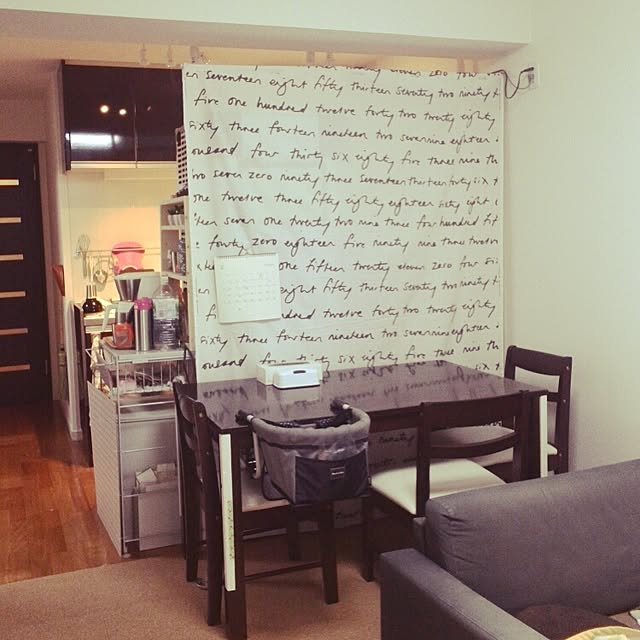 seventeen eight fifty thirteen seventy two ninety
five one hundred twelve forty two twenty eighty
sixty three fourteen nineteen two seven nine eighteen
four thirty six eighty five three nine
two seven zero ninety three seventeen thirteen forty six
one twelve three fifty eighty eighteen sixty eight
seven one twenty two nine three four hundred
forty zero eighteen five ninety nine three twelve
one fifteen twenty eleven zero four
eight fifty thirteen seventy two ninety
twelve forty two twenty eighty
sixty three fourteen nineteen two seven nine eighteen
four thirty six eighty five three nine